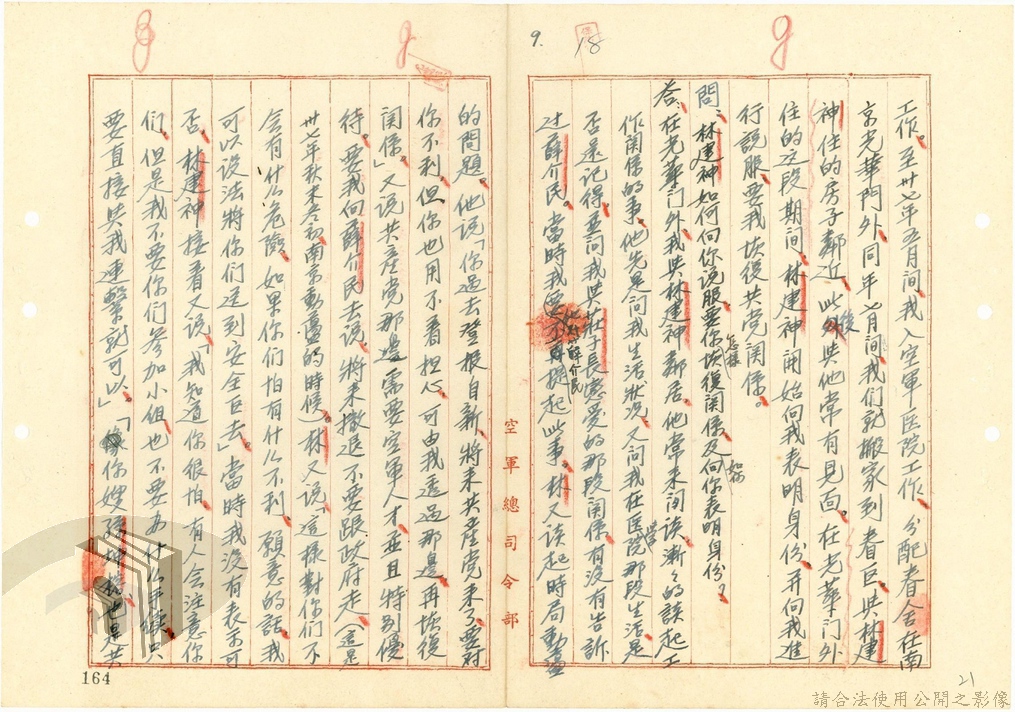 9.
18
工作。至卅七年五月間,我入空軍医院工作,分配眷舍在南
京光華門外,同年七月間,我们就搬家到眷区,與林建
神住的房子鄰近,此後與他常有見面。在光華門外
住的这段期间,林建神開始向我表明身份,并向我進
行說服,要我恢復共党関係。
問:林建神如何向你说服要你怎樣恢復関係及如何向你表明身份?
答:在光華门外我與林建神鄰居,他常来闲谈,漸々的談起工
作関係的事,他先是问我生活狀況,又问我在医院那段生活是
否還記得,並问我與莊子長戀愛的那段関係,有没有告訴
过薛介民。當時我要薛介民不再提起此事,林又谈起時局動盪
的問題,他说「你過去登報自新,將来共產党来了,要对
你不利,但你也用不着担心,可由我透過那邊,再恢復
関係。」又说共産党那邊需要空軍人才,並且特别優
待。要我向薛介民去说,將来撤退不要跟政府走。(這是
卅七年秋末冬初,南京動盪的時候)林又说「這樣對你们不
会有什么危險,如果你们怕有什么不利,願意的話,我
可以设法將你们送到安全区去。」當時我没有表示可
否,林建神接着又说「我知道你很怕,有人会注意你
们,但是我不要你们参加小組,也不要办什么手續,只
要直接與我連繫就可以。」「像你嫂孫坤榕也是共
空軍總司令部
164
21
請合法使用公開之影像